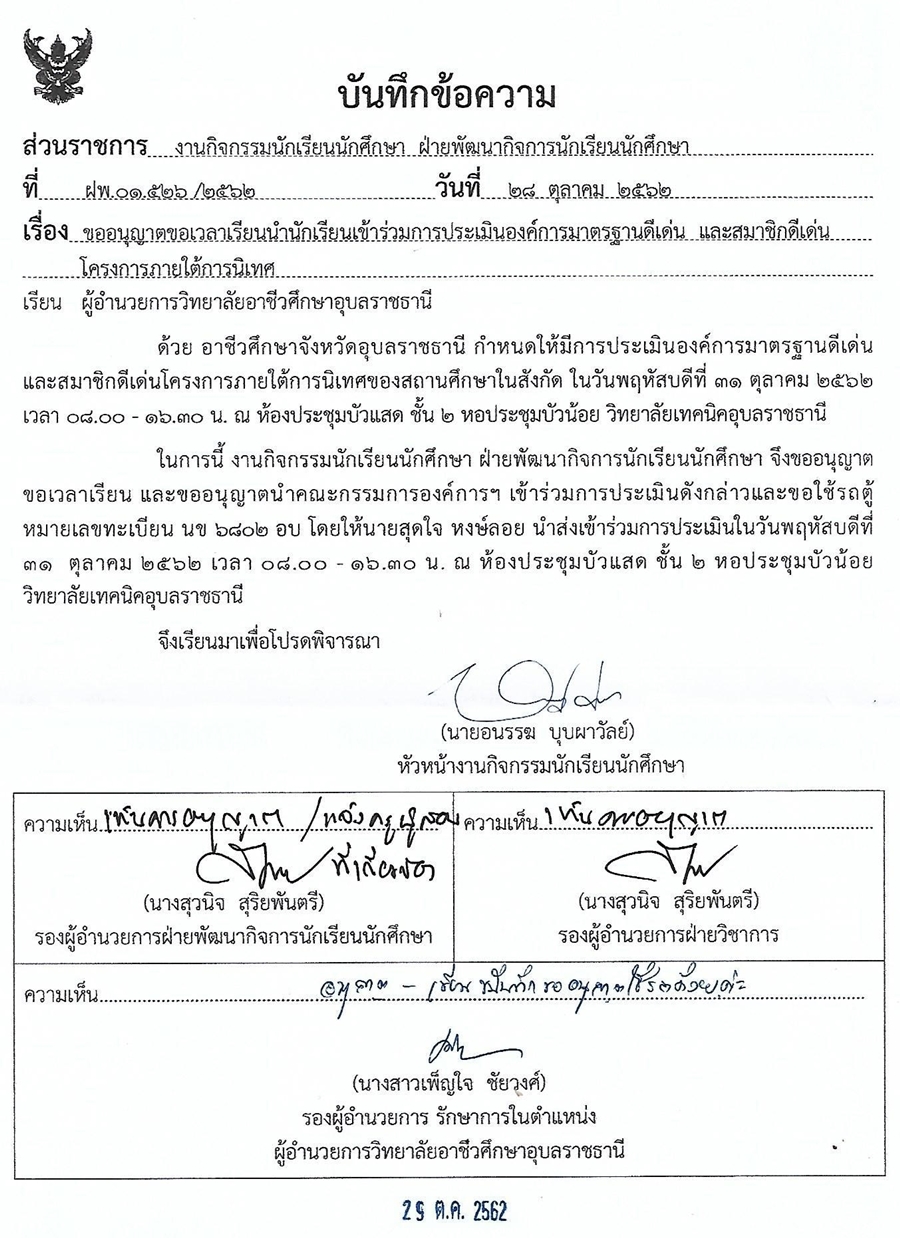 บันทึกข้อความ
ส่วนราชการ งานกิจกรรมนักเรียนนักศึกษา ฝ่ายพัฒนากิจการนักเรียนนักศึกษา
ที่ ฝพ.๐๑.๕๒๖ /๒๕๖๒ วันที่ ๒๘ ตุลาคม ๒๕๖๒
เรื่อง ขออนุญาตขอเวลาเรียนนำนักเรียนเข้าร่วมการประเมินองค์การมาตรฐานดีเด่น และสมาชิกดีเด่น
โครงการภายใต้การนิเทศ
เรียน ผู้อำนวยการวิทยาลัยอาชีวศึกษาอุบลราชธานี
ด้วย อาชีวศึกษาจังหวัดอุบลราชธานี กำหนดให้มีการประเมินองค์การมาตรฐานดีเด่น
และสมาชิกดีเด่นโครงการภายใต้การนิเทศของสถานศึกษาในสังกัด ในวันพฤหัสบดีที่ ๓๑ ตุลาคม ๒๕๖๒
เวลา ๐๘.๐๐ - ๑๖.๓๐ น. ณ ห้องประชุมบัวแสด ชั้น ๒ หอประชุมบัวน้อย วิทยาลัยเทคนิคอุบลราชธานี
ในการนี้ งานกิจกรรมนักเรียนนักศึกษา ฝ่ายพัฒนากิจการนักเรียนนักศึกษา จึงขออนุญาต
ขอเวลาเรียน และขออนุญาตนำคณะกรรมการองค์การฯ เข้าร่วมการประเมินดังกล่าวและขอใช้รถตู้
หมายเลขทะเบียน นข ๖๘๐๒ อบ โดยให้นายสุดใจ หงษ์ลอย นำส่งเข้าร่วมการประเมินในวันพฤหัสบดีที่
๓๑ ตุลาคม ๒๕๖๒ เวลา ๐๘.๐๐ - ๑๖.๓๐ น. ณ ห้องประชุมบัวแสด ชั้น ๒ หอประชุมบัวน้อย
วิทยาลัยเทคนิคอุบลราชธานี
จึงเรียนมาเพื่อโปรดพิจารณา
(นายอนรรฆ บุบผาวัลย์)
หัวหน้างานกิจกรรมนักเรียนนักศึกษา
ความเห็น เห็นควรอนุญาต / แจ้งครูผู้สอน
ที่เกี่ยวข้อง
(นางสุวนิจ สุริยพันตรี)
รองผู้อำนวยการฝ่ายพัฒนากิจการนักเรียนนักศึกษา
ความเห็น เห็นควรอนุญาต
(นางสุวนิจ สุริยพันตรี)
รองผู้อำนวยการฝ่ายวิชาการ
ความเห็น อนุญาต - บันทึกขออนุญาตใช้รถด้วยค่ะ
(นางสาวเพ็ญใจ ชัยวงศ์)
รองผู้อำนวยการ รักษาการในตำแหน่ง
ผู้อำนวยการวิทยาลัยอาชีวศึกษาอุบลราชธานี
29 ต.ค. 2562